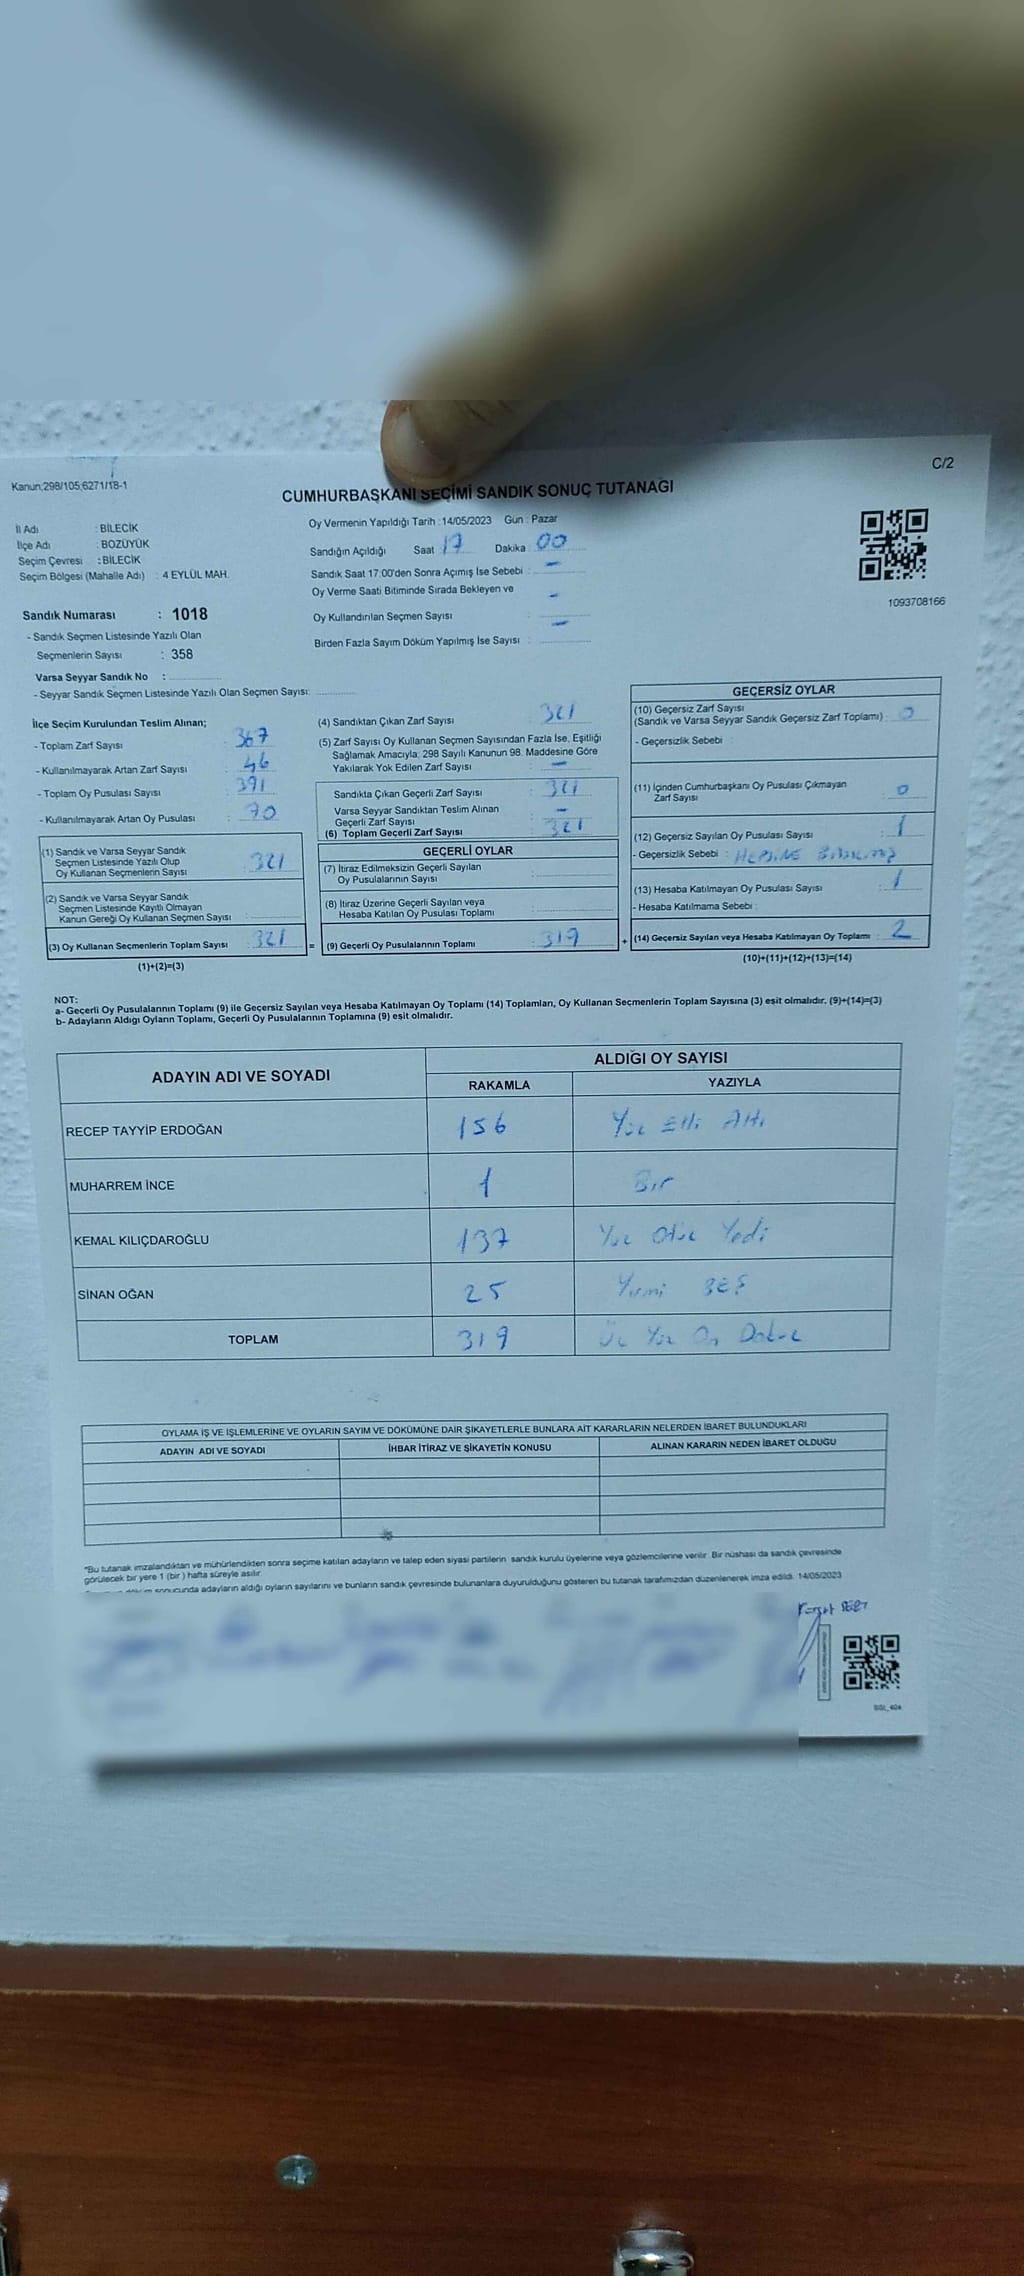 C/2
Kanun;298/105;6271/18-1
CUMHURBAŞKANI SEÇİMİ SANDIK SONUÇ TUTANAĞI
İl Adı : BİLECİK
İlçe Adı : BOZÜYÜK
Seçim Çevresi : BİLECİK
Seçim Bölgesi (Mahalle Adı) : 4 EYLÜL MAH.
Oy Vermenin Yapıldığı Tarih : 14/05/2023 Gün : Pazar
Sandığın Açıldığı Saat 17 Dakika 00
Sandık Saat 17:00'den Sonra Açımış İse Sebebi : -
Oy Verme Saati Bitiminde Sırada Bekleyen ve
Oy Kullandırılan Seçmen Sayısı : -
Birden Fazla Sayım Döküm Yapılmış İse Sayısı : -
1093708166
Sandık Numarası : 1018
- Sandık Seçmen Listesinde Yazılı Olan
Seçmenlerin Sayısı : 358
Varsa Seyyar Sandık No :
- Seyyar Sandık Seçmen Listesinde Yazılı Olan Seçmen Sayısı:
İlçe Seçim Kurulundan Teslim Alınan;
- Toplam Zarf Sayısı : 367
- Kullanılmayarak Artan Zarf Sayısı : 46
- Toplam Oy Pusulası Sayısı : 391
- Kullanılmayarak Artan Oy Pusulası : 70
(1) Sandık ve Varsa Seyyar Sandık
Seçmen Listesinde Yazılı Olup
Oy Kullanan Seçmenlerin Sayısı : 321
(2) Sandık ve Varsa Seyyar Sandık
Seçmen Listesinde Kayıtlı Olmayan
Kanun Gereği Oy Kullanan Seçmen Sayısı :
(3) Oy Kullanan Seçmenlerin Toplam Sayısı : 321
(1)+(2)=(3)
(4) Sandıktan Çıkan Zarf Sayısı : 321
(5) Zarf Sayısı Oy Kullanan Seçmen Sayısından Fazla İse, Eşitliği
Sağlamak Amacıyla; 298 Sayılı Kanunun 98. Maddesine Göre
Yakılarak Yok Edilen Zarf Sayısı : -
Sandıkta Çıkan Geçerli Zarf Sayısı : 321
Varsa Seyyar Sandıktan Teslim Alınan
Geçerli Zarf Sayısı : -
(6) Toplam Geçerli Zarf Sayısı : 321
GEÇERLİ OYLAR
(7) İtiraz Edilmeksizin Geçerli Sayılan
Oy Pusulalarının Sayısı :
(8) İtiraz Üzerine Geçerli Sayılan veya
Hesaba Katılan Oy Pusulası Toplamı :
= (9) Geçerli Oy Pusulalarının Toplamı : 319
GEÇERSİZ OYLAR
(10) Geçersiz Zarf Sayısı
(Sandık ve Varsa Seyyar Sandık Geçersiz Zarf Toplamı) : 0
- Geçersizlik Sebebi :
(11) İçinden Cumhurbaşkanı Oy Pusulası Çıkmayan
Zarf Sayısı : 0
(12) Geçersiz Sayılan Oy Pusulası Sayısı : 1
- Geçersizlik Sebebi : HEPSİNE
(13) Hesaba Katılmayan Oy Pusulası Sayısı : 1
- Hesaba Katılmama Sebebi :
+ (14) Geçersiz Sayılan veya Hesaba Katılmayan Oy Toplamı : 2
(10)+(11)+(12)+(13)=(14)
NOT:
a- Geçerli Oy Pusulalarının Toplamı (9) ile Geçersiz Sayılan veya Hesaba Katılmayan Oy Toplamı (14) Toplamları, Oy Kullanan Seçmenlerin Toplam Sayısına (3) eşit olmalıdır. (9)+(14)=(3)
b- Adayların Aldığı Oyların Toplamı, Geçerli Oy Pusulalarının Toplamına (9) eşit olmalıdır.
ADAYIN ADI VE SOYADI ALDIĞI OY SAYISI
RAKAMLA YAZIYLA
RECEP TAYYİP ERDOĞAN 156 Yüz Elli Altı
MUHARREM İNCE 1 Bir
KEMAL KILIÇDAROĞLU 137 Yüz Otuz Yedi
SİNAN OĞAN 25 Yirmi BEŞ
TOPLAM 319 Üç Yüz On Dokuz
OYLAMA İŞ VE İŞLEMLERİNE VE OYLARIN SAYIM VE DÖKÜMÜNE DAİR ŞİKAYETLERLE BUNLARA AİT KARARLARIN NELERDEN İBARET BULUNDUKLARI
ADAYIN ADI VE SOYADI İHBAR İTİRAZ VE ŞİKAYETİN KONUSU ALINAN KARARIN NEDEN İBARET OLDUĞU
*Bu tutanak imzalandıktan ve mühürlendikten sonra seçime katılan adayların ve talep eden siyasi partilerin sandık kurulu üyelerine veya gözlemcilerine verilir. Bir nüshası da sandık çevresinde
görülecek bir yere 1 (bir) hafta süreyle asılır.
sonucunda adayların aldığı oyların sayılarını ve bunların sandık çevresinde bulunanlara duyurulduğunu gösteren bu tutanak tarafımızdan düzenlenerek imza edildi. 14/05/2023